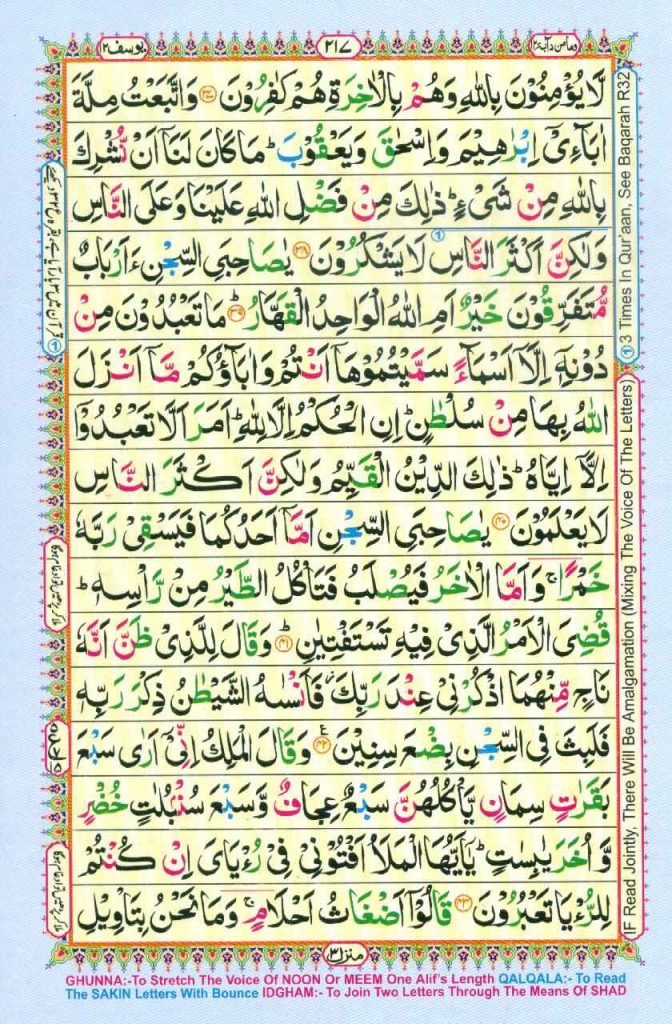 وما من دآبة ١٢
٢١٧
يوسف ١٢
لَا يُؤْمِنُوْنَ بِاللّٰهِ وَهُمْ بِالْاٰخِرَةِ هُمْ كٰفِرُوْنَ ۝٣٧ وَاتَّبَعْتُ مِلَّةَ
اٰبَآءِيْٓ اِبْرٰهِيْمَ وَاِسْحٰقَ وَيَعْقُوْبَ ؕ مَا كَانَ لَنَآ اَنْ نُّشْرِكَ
بِاللّٰهِ مِنْ شَيْءٍ ؕ ذٰلِكَ مِنْ فَضْلِ اللّٰهِ عَلَيْنَا وَعَلَى النَّاسِ
وَلٰكِنَّ اَكْثَرَ النَّاسِ لَا يَشْكُرُوْنَ ۝٣٨ يٰصَاحِبَيِ السِّجْنِ ءَاَرْبَابٌ
مُّتَفَرِّقُوْنَ خَيْرٌ اَمِ اللّٰهُ الْوَاحِدُ الْقَهَّارُ ؕ ۝٣٩ مَا تَعْبُدُوْنَ مِنْ
دُوْنِهٖٓ اِلَّآ اَسْمَآءً سَمَّيْتُمُوْهَآ اَنْتُمْ وَاٰبَآؤُكُمْ مَّآ اَنْزَلَ
اللّٰهُ بِهَا مِنْ سُلْطٰنٍ ؕ اِنِ الْحُكْمُ اِلَّا لِلّٰهِ ؕ اَمَرَ اَلَّا تَعْبُدُوْٓا
اِلَّآ اِيَّاهُ ؕ ذٰلِكَ الدِّيْنُ الْقَيِّمُ وَلٰكِنَّ اَكْثَرَ النَّاسِ
لَا يَعْلَمُوْنَ ۝٤٠ يٰصَاحِبَيِ السِّجْنِ اَمَّآ اَحَدُكُمَا فَيَسْقِيْ رَبَّهٗ
خَمْرًا ۚ وَاَمَّا الْاٰخَرُ فَيُصْلَبُ فَتَاْكُلُ الطَّيْرُ مِنْ رَّاْسِهٖ ؕ
قُضِيَ الْاَمْرُ الَّذِيْ فِيْهِ تَسْتَفْتِيٰنِ ؕ ۝٤١ وَقَالَ لِلَّذِيْ ظَنَّ اَنَّهٗ
نَاجٍ مِّنْهُمَا اذْكُرْنِيْ عِنْدَ رَبِّكَ ؗ فَاَنْسٰىهُ الشَّيْطٰنُ ذِكْرَ رَبِّهٖ
فَلَبِثَ فِي السِّجْنِ بِضْعَ سِنِيْنَ ۝٤٢ ع وَقَالَ الْمَلِكُ اِنِّيْٓ اَرٰى سَبْعَ
بَقَرٰتٍ سِمَانٍ يَّاْكُلُهُنَّ سَبْعٌ عِجَافٌ وَّسَبْعَ سُنْۢبُلٰتٍ خُضْرٍ
وَّاُخَرَ يٰبِسٰتٍ ؕ يٰٓاَيُّهَا الْمَلَاُ اَفْتُوْنِيْ فِيْ رُءْيَايَ اِنْ كُنْتُمْ
لِلرُّءْيَا تَعْبُرُوْنَ ۝٤٣ قَالُوْٓا اَضْغَاثُ اَحْلَامٍ ۚ وَمَا نَحْنُ بِتَاْوِيْلِ
منزل ٣
① 3 Times In Qur'aan, See Baqarah R32
IF Read Jointly, There Will Be Amalgamation (Mixing The Voice Of The Letters)
GHUNNA:-To Stretch The Voice Of NOON Or MEEM One Alif's Length QALQALA:- To Read
The SAKIN Letters With Bounce IDGHAM:- To Join Two Letters Through The Means Of SHAD